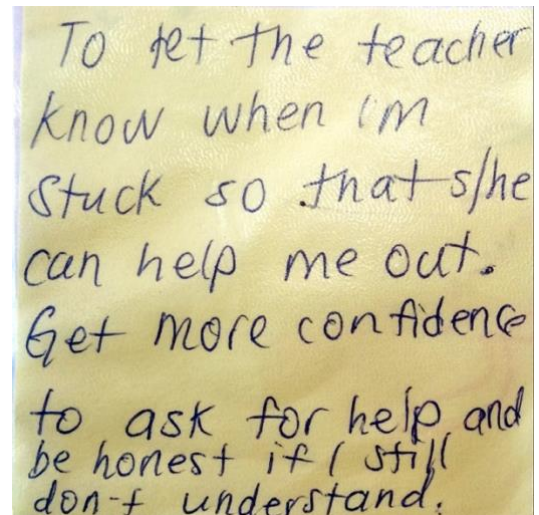 To let the teacher
know when i'm
stuck so that s/he
can help me out.
Get more confidence
to ask for help and
be honest if I still
don't understand.